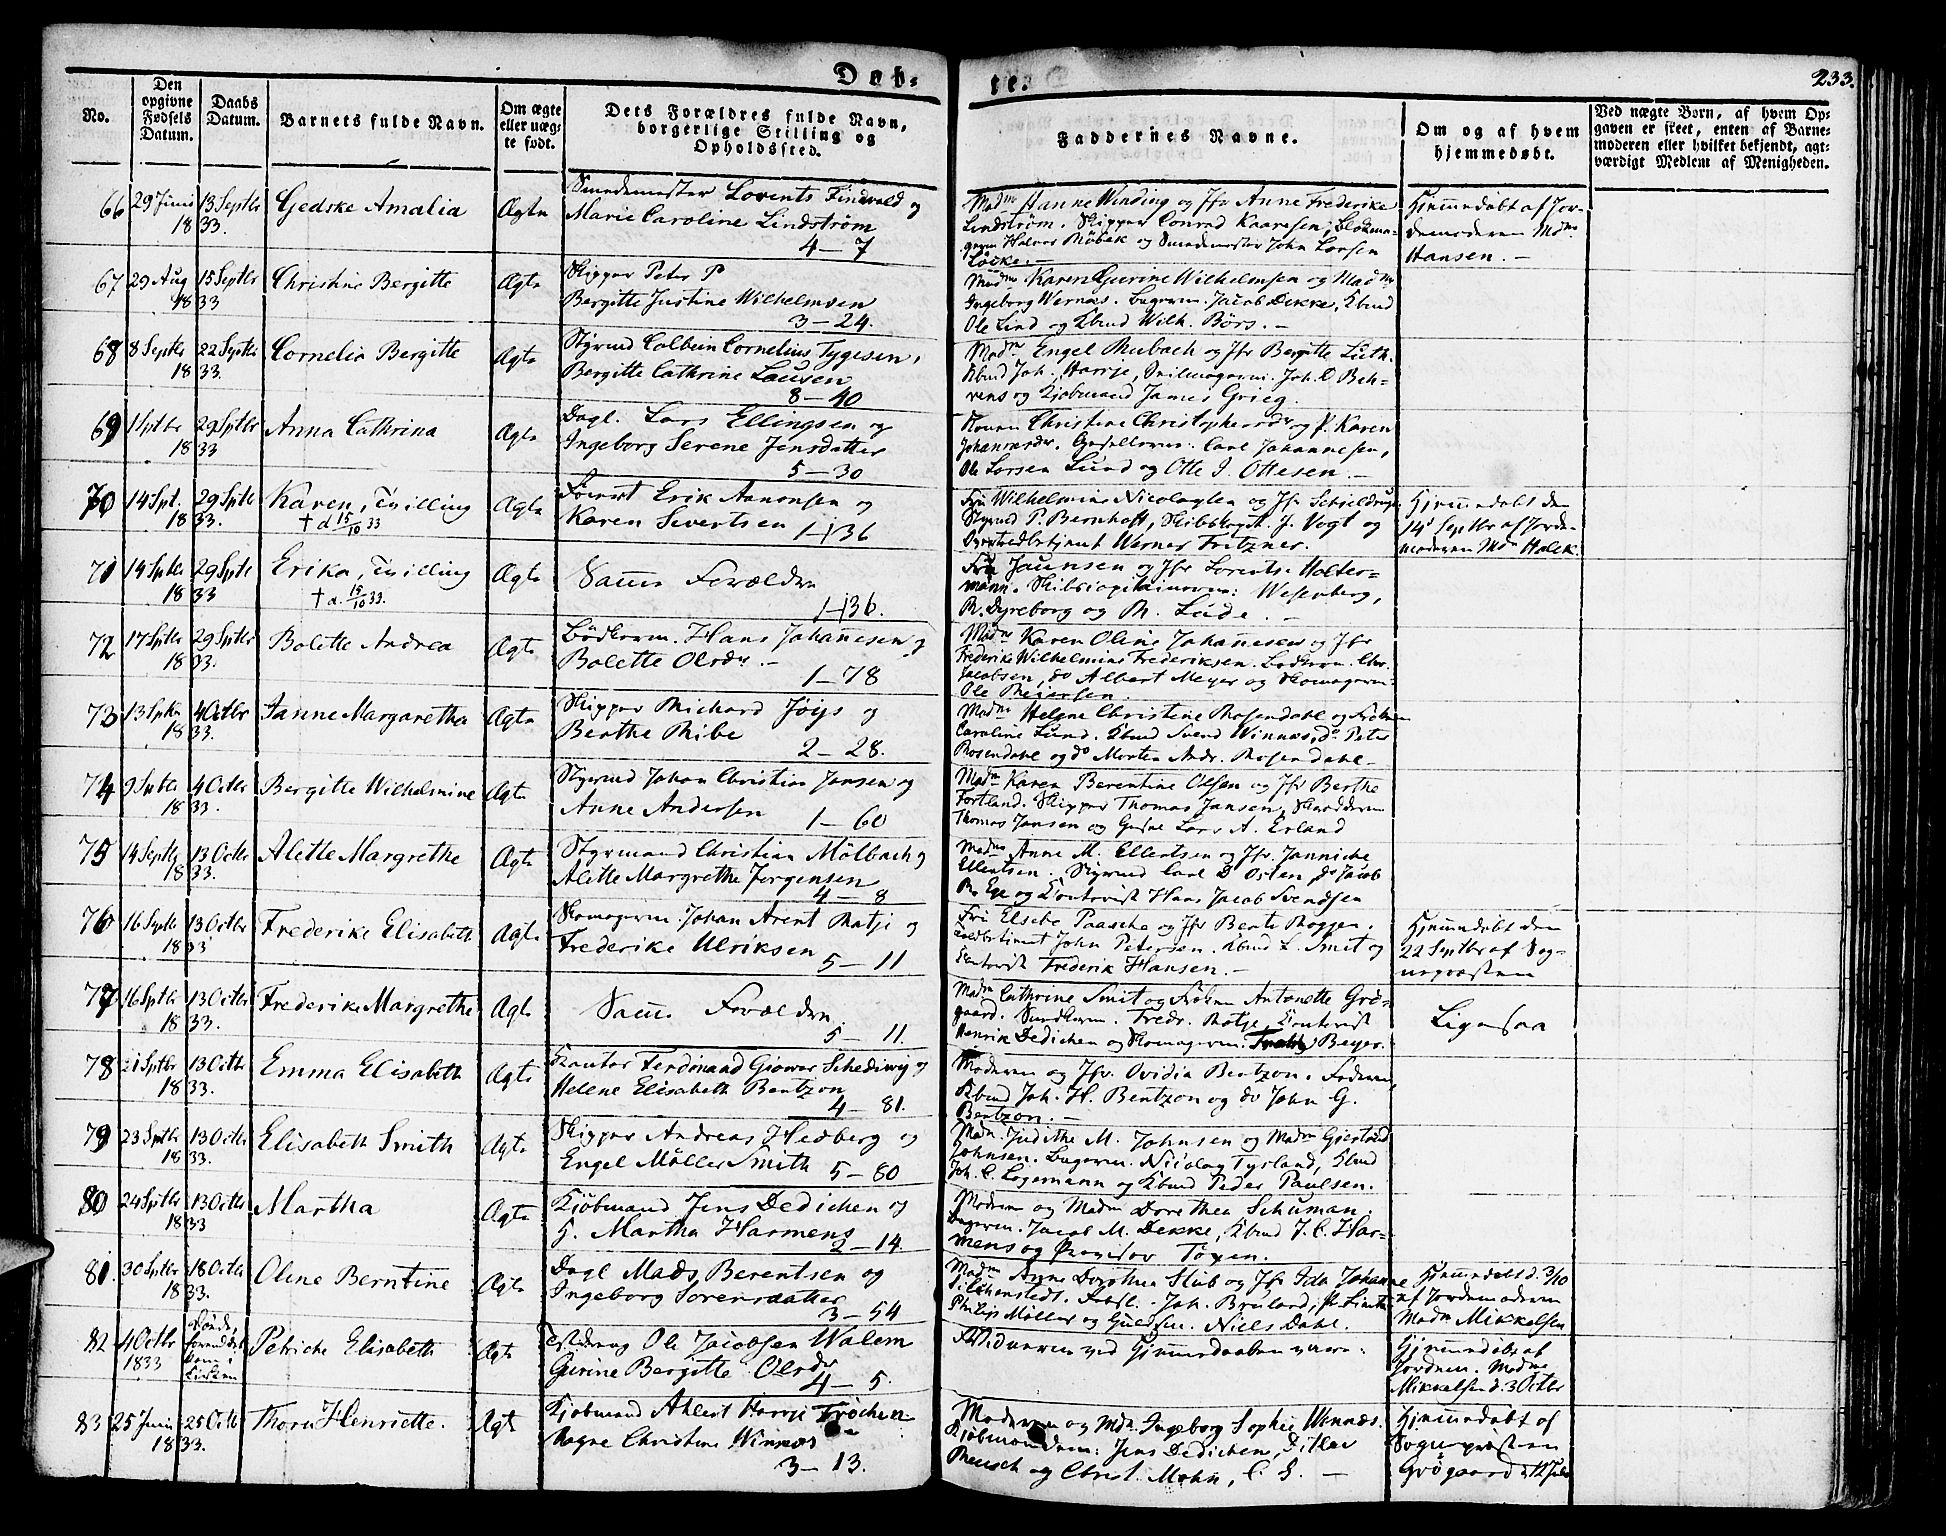 Døb- te.
233.
No. Den opgivne Fødsels Datum. Daabs Datum. Barnets fulde Navn. Om ægte eller uægte født. Dets Forældres fulde Navn, borgerlige Stilling og Opholdssted. Faddernes Navne. Om og af hvem hjemmedøbt. Ved uægte Børn, af hvem Opgaven er skeet, enten af Barnemoderen eller hvilket bekjendt, agtværdigt Medlem af Menigheden.
66 29 Junii 13 Septbr Gedske Amalia Ægte Smedemester Lorents Findwald og
18 33. Marie Caroline Lindstrøm
4 – 7
Madm Hanne Winding og Jfr Anne Frederike
Lindstrøm. Skipper Conrad Kaaresen, Blokma-
ger Halvor Röbek og Smedemester John Larsen
Löcke. –
Hjemmedøbt af Jor-
demoderen Mdm
Hansen. –
67 29 Aug 15 Septbr Christine Bergitte Ægte Skipper Peter P
18 33 Bergitte Justine Wilhelmsen
3 – 24.
Madm Karen Gurine Wilhelmsen og Madm
Ingeborg Wernas. Bagerm. Jacob Dekke, Kbmd
Ole Lind og Kbmd Wilh. Börs. –
68 8 Septbr 22 Septbr Cornelia Bergitte Ægte Styrmd Colbein Cornelius Tygesen,
18 33. Bergitte Cathrine Lausen
8 – 40
Madm Engel Rubach og Jfr Bergitte Lüth.
Kbmd Joh. Harrje, Seilmagerm. Joh. D Beh-
rens og Kjøbmand James Grieg.
69 1 Sptbr 29 Sptbr Anna Cathrina Ægte Dagl. Lars Ellingsen og
18 33 Ingeborg Serene Jensdatter
5 – 30
Konen Christine Christophersdr og P. Karen
Johannesdr. Carl Johannesen,
Ole Larsen Lund og Otte J. Ottesen. –
70 14 Spt. 29 Sptb Karen, Tvilling Ægte Erik Aanonsen og
18 33. † d 15/10 33 Karen Sivertsen 1 – 136
Fru Wilhelmine Nicolaysen og Jfr Schieldrup
Styrmd P. Bernhoft, Skibskapt. J. Vogt og
Werner Fritzner.
Hjemmedøbt den
14 Septbr af Jorde-
moderen Mdm Halek.
71 14 Sptbr 29 Sptb Erika, Tvilling Ægte Samme Forældre
18 33 † d. 15/10 33. 1 – 136.
Fru Jaunsen og Jfr Lorentse Holter-
mann. Skibscapitainerne: Wesenberg,
R. Dyreborg og M. Lude. –
72 17 Sptbr 29 Sptbr Bolette Andrea Ægte Bödkerm. Hans Johannesen og
18 33. Bolette Olsdr. –
1 – 78
Madm Karen Oline Johannesen og Jfr
Frederike Wilhelmine Frederiksen. Bödkerm. Chr.
Jacobsen, do Albert Meyer og Skomagerm.
Ole Reiersen.
73 13 Sptbr 4 Octbr Janne Margaretha Ægte Skipper Richard Joys og
18 33. Berthe Ribe
2 – 28.
Madm Helene Christine Rosendahl og Frøken
Caroline Lund. Kbmd Svend Winnæs, do Peter
Rosendahl og do Morten Andr. Rosendahl –
74 9 Sptbr 4 Octbr Bergitte Wilhelmine Ægte Styrmd Johan Christian Jansen og
18 33. Anne Andersen 1 – 60
Madm Karen Berentine Olsen og Jfr Berthe
Fortland. Skipper Thomas Jansen, Skrædderm
Thomas Jansen og Lars A. Erland
75 14 Septbr 13 Octbr Alette Margrethe Ægte Styrmand Christian Mölbach og
18 33. Alette Margrethe Jørgensen
4 – 8
Madm Anne M. Ellertsen og Jfr. Janniche
Ellertsen. Styrmd Carl D Osten, do Jacob
R. Ege og Contorist Hans Jacob Svendsen
76 16 Sptb 13 Octbr Frederike Elisabeth Ægte Skomagerm. Johan Arent Ratje og
18 33 Frederike Ulriksen
5 – 11
Fru Elsebe Paasche og Jfr Berte Roggen.
Toldbetjent John Petersen. Kbmd L. Smit og
Contorist Frederik Hansen. –
Hjemmedøbt den
22 Septbr af Sog-
nepræsten
77 16 Sptbr 13 Octbr Frederike Margrethe Ægte Samme Forældre.
18 33. 5 – 11.
Madm Cathrine Smit og Frøken Antonette Grö-
gaard. Snedkerm. Fredr. Ratje, Contorist
Henrik Dedichen og Skomagerm. Beyer.
Ligesaa
78 21 Sptbr 13 Octb Emma Elisabeth Ægte Kantor Ferdinand Giower Schediwy og
18 33. Helene Elisabeth Bentzon
4 – 81.
Moderen og Jfr. Ovidia Bentzon. Faderen,
Kbmd Joh. H. Bentzon og do John G.
Bentzon. –
79 23 Sptbr 13 Octbr Elisabeth Smith Ægte Skipper Andreas Hedberg og
18 33. Engel Möller Smith 5 – 80
Madm. Judithe M. Johnsen og Madm Giertrud
Johnsen. Bagerm. Nicolay Tysland, Kbmd
Joh. C. Logemann og Kbmd Peder Paulsen.
80 24 Sptbr 13 Octbr Martha Ægte Kjøbmand Jens Dedichen og
18 33 H. Martha Harmens
2 – 14
Moderen og Madm Dorethea Schuman.
Bagerm. Jacob M. Dekke, Kbmd J. C. Har-
mens og Provisor Toxen.
81. 30 Sptbr 18 Octbr Oline Berntine Ægte Dagl Mads Berentsen og
18 33. Ingeborg Sorensdatter
3 – 54
Madm Anne Dorothea Stub og Jfr Ida Johanne
Joh. Bruland,
Philip Möller og Niels Dahl.
Hjemmedøbt d. 3/10
af Jordemoderen
Madm Mikkelsen
82 4 Octbr Döde, Petriche Elisabeth Ægte Ole Jacobsen Walem
1833 forend det kom i Kirken Gurine Bergitte Olsdr
4 – 5.
Vidnerne ved Hjemmedaaben vare:
Hjemmedøbt af
Jordem. Madm
Mikkelsen d. 3 Octbr
83 25 Junii 25 Octb Thora Henriette. Ægte Kjøbmand Ahlert Harrje Tröchen
18 33. Christine Winnæs
3 – 13.
Moderen og Mdm. Ingeborg Sophie Winnæs.
Kjøbmændene: Jens Dedichen, Ditlev
Rensch og Christ. Mohn, C. S. –
Hjemmedøbt af
Sognepræsten
Grögaard d. 12 Juli